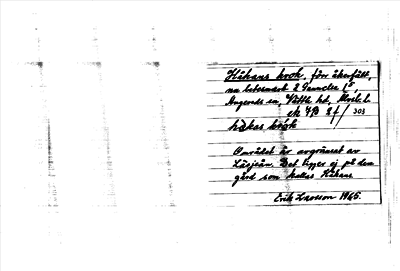 Håkans krok, förr åkerfält,
nu betesmark 2 Tannåker 1⁵,
Angereds sn, Vättle hd, Älvsb. l.
ek 7B 2f / 303
håkas krok
Området är avgränsat av
Lärjeån. Det ligger ej på den
gård som kallas Håkans
Erik Larsson 1965.